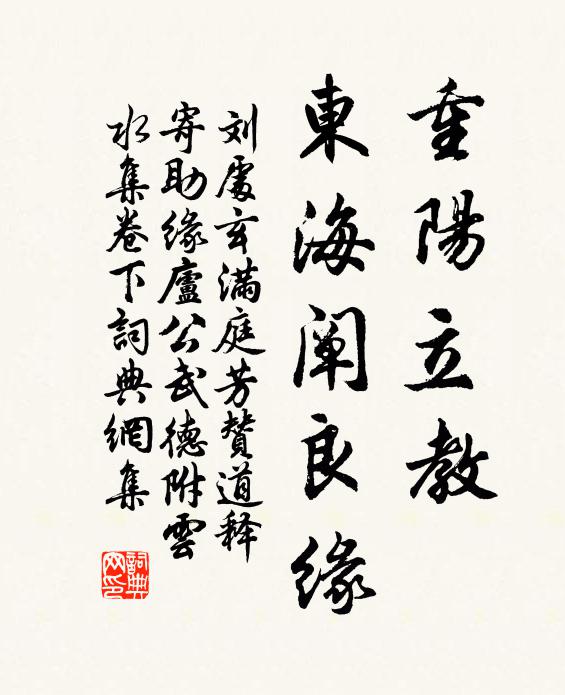 重陽立教
東海阐良緣
刘處玄满庭芳贊道释
寄助缘廬公武德附雲
水集卷下詞典網集
詞典網印